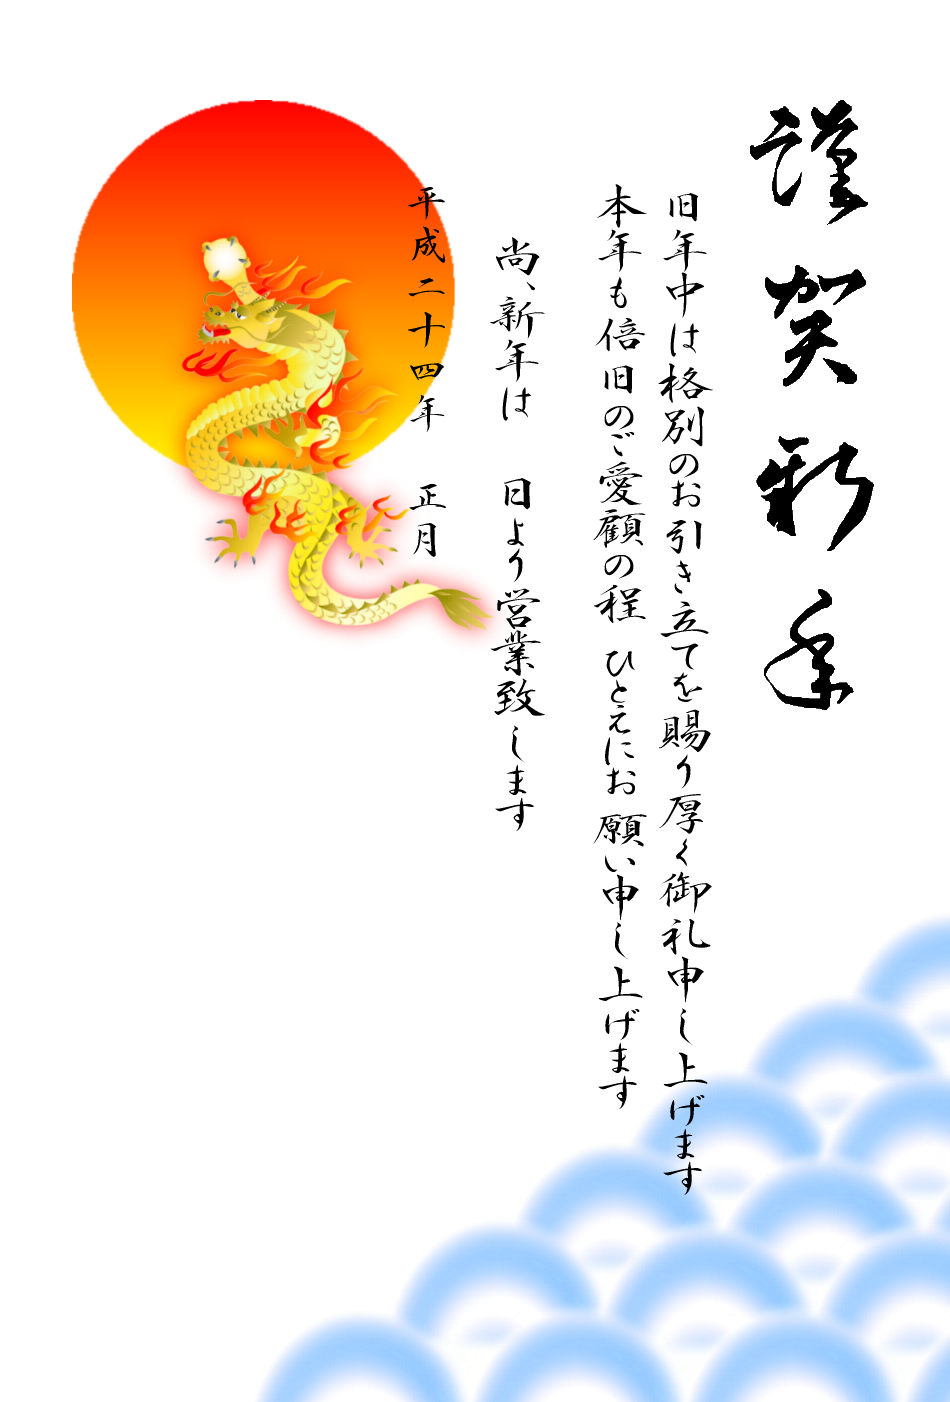 謹賀新年
旧年中は格別のお引き立てを賜り厚く御礼申し上げます
本年も倍旧のご愛顧の程 ひとえにお願い申し上げます
尚、新年は　日より営業致します
平成二十四年　正月